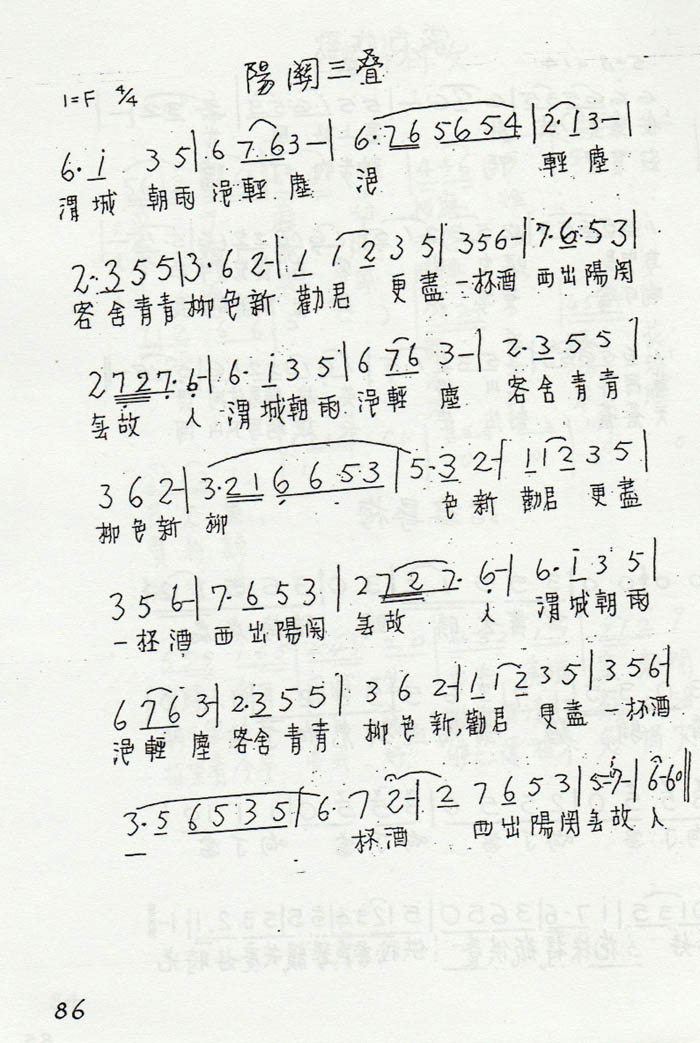 陽関三叠
1=F 4/4
6· i 3 5 | 6 7 6 3 – | 6· 7 6 5 6 5 4 | 2· 1 3 – |
渭 城 朝 雨 浥 輕 塵 浥 輕 塵
2· 3 5 5 | 3· 6 2 – | 1 1 2 3 5 | 3 5 6 – | 7· 6 5 3 |
客 舍 青 青 柳 色 新 勸 君 更 盡 一 杯 酒 西 出 陽 関
2 7 2 7· 6 – | 6· i 3 5 | 6 7 6 3 – | 2· 3 5 5 |
無 故 人 渭 城 朝 雨 浥 輕 塵 客 舍 青 青
3 6 2 – | 3· 2 1 6 6 5 3 | 5· 3 2 – | 1 1 2 3 5 |
柳 色 新 柳 色 新 勸 君 更 盡
3 5 6 – | 7· 6 5 3 | 2 7 2 7· 6 – | 6· i 3 5 |
一 杯 酒 西 出 陽 関 無 故 人 渭 城 朝 雨
6 7 6 3 – | 2· 3 5 5 | 3 6 2 – | 1 1 2 3 5 | 3 5 6 – |
浥 輕 塵 客 舍 青 青 柳 色 新, 勸 君 更 盡 一 杯 酒
3· 5 6 5 3 5 | 6· 7 2 – | 2 7 6 5 3 | 5 – 7 – | 6 – 6 0 ‖
一 杯 酒 西 出 陽 関 無 故 人
86